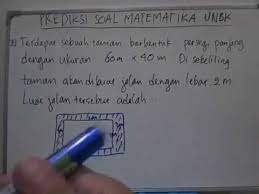 PREDIKSI SOAL MATEMATIKA UNBK
Terdapat sebuah taman berbentuk persegi panjang
dengan ukuran 60m x 40m Di sekeliling
taman akan dibuat jalan dengan lebar 2m
Luas jalan tersebut adalah ...